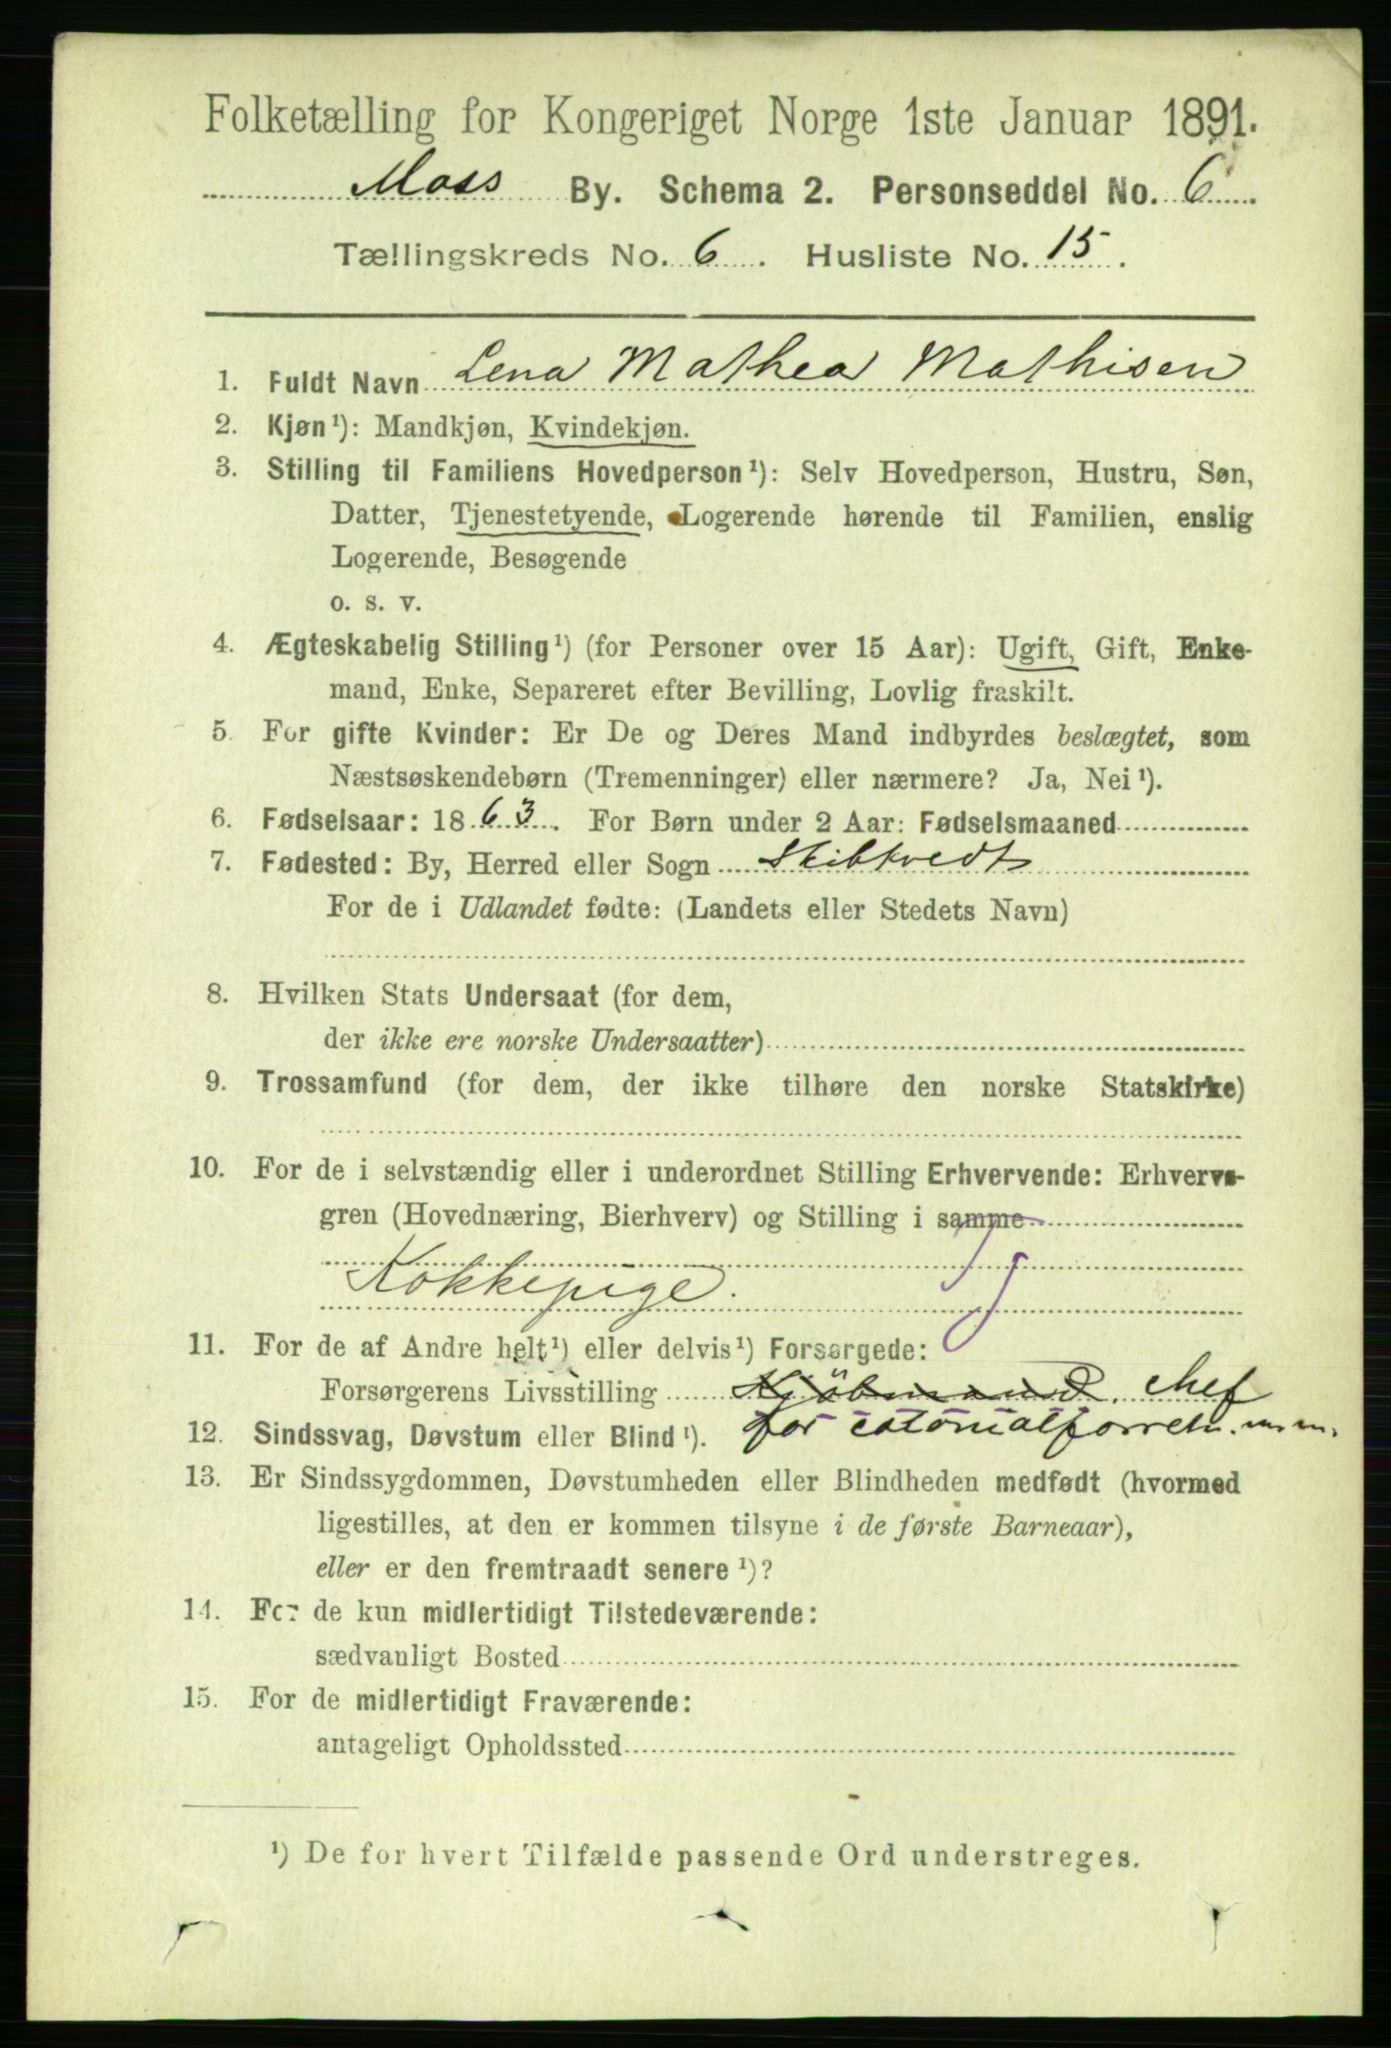 Folketælling for Kongeriget Norge 1ste Januar 1891.
Moss By. Schema 2. Personseddel No. 6
Tællingskreds No. 6. Husliste No. 15.
1. Fuldt Navn Lena Mathea Mathisen
2. Kjøn¹): Mandkjøn, Kvindekjøn.
3. Stilling til Familiens Hovedperson¹): Selv Hovedperson, Hustru, Søn,
Datter, Tjenestetyende, Logerende hørende til Familien, enslig
Logerende, Besøgende
o. s. v.
4. Ægteskabelig Stilling¹) (for Personer over 15 Aar): Ugift, Gift, Enke-
mand, Enke, Separeret efter Bevilling, Lovlig fraskilt.
5. For gifte Kvinder: Er De og Deres Mand indbyrdes beslægtet, som
Næstsøskendebørn (Tremenninger) eller nærmere? Ja, Nei¹).
6. Fødselsaar: 1863. For Børn under 2 Aar: Fødselsmaaned
7. Fødested: By, Herred eller Sogn Skibtvedt
For de i Udlandet fødte: (Landets eller Stedets Navn)
8. Hvilken Stats Undersaat (for dem,
der ikke ere norske Undersaatter)
9. Trossamfund (for dem, der ikke tilhøre den norske Statskirke)
10. For de i selvstændig eller i underordnet Stilling Erhvervende: Erhvervs-
gren (Hovednæring, Bierhverv) og Stilling i samme
Kokkepige.
11. For de af Andre helt¹) eller delvis¹) Forsørgede:
Forsørgerens Livsstilling Kjöbmand. chef
for colonialforretn. m. m.
12. Sindssvag, Døvstum eller Blind¹).
13. Er Sindssygdommen, Døvstumheden eller Blindheden medfødt (hvormed
ligestilles, at den er kommen tilsyne i de første Barneaar),
eller er den fremtraadt senere¹)?
14. For de kun midlertidigt Tilstedeværende:
sædvanligt Bosted
15. For de midlertidigt Fraværende:
antageligt Opholdssted
¹) De for hvert Tilfælde passende Ord understreges.